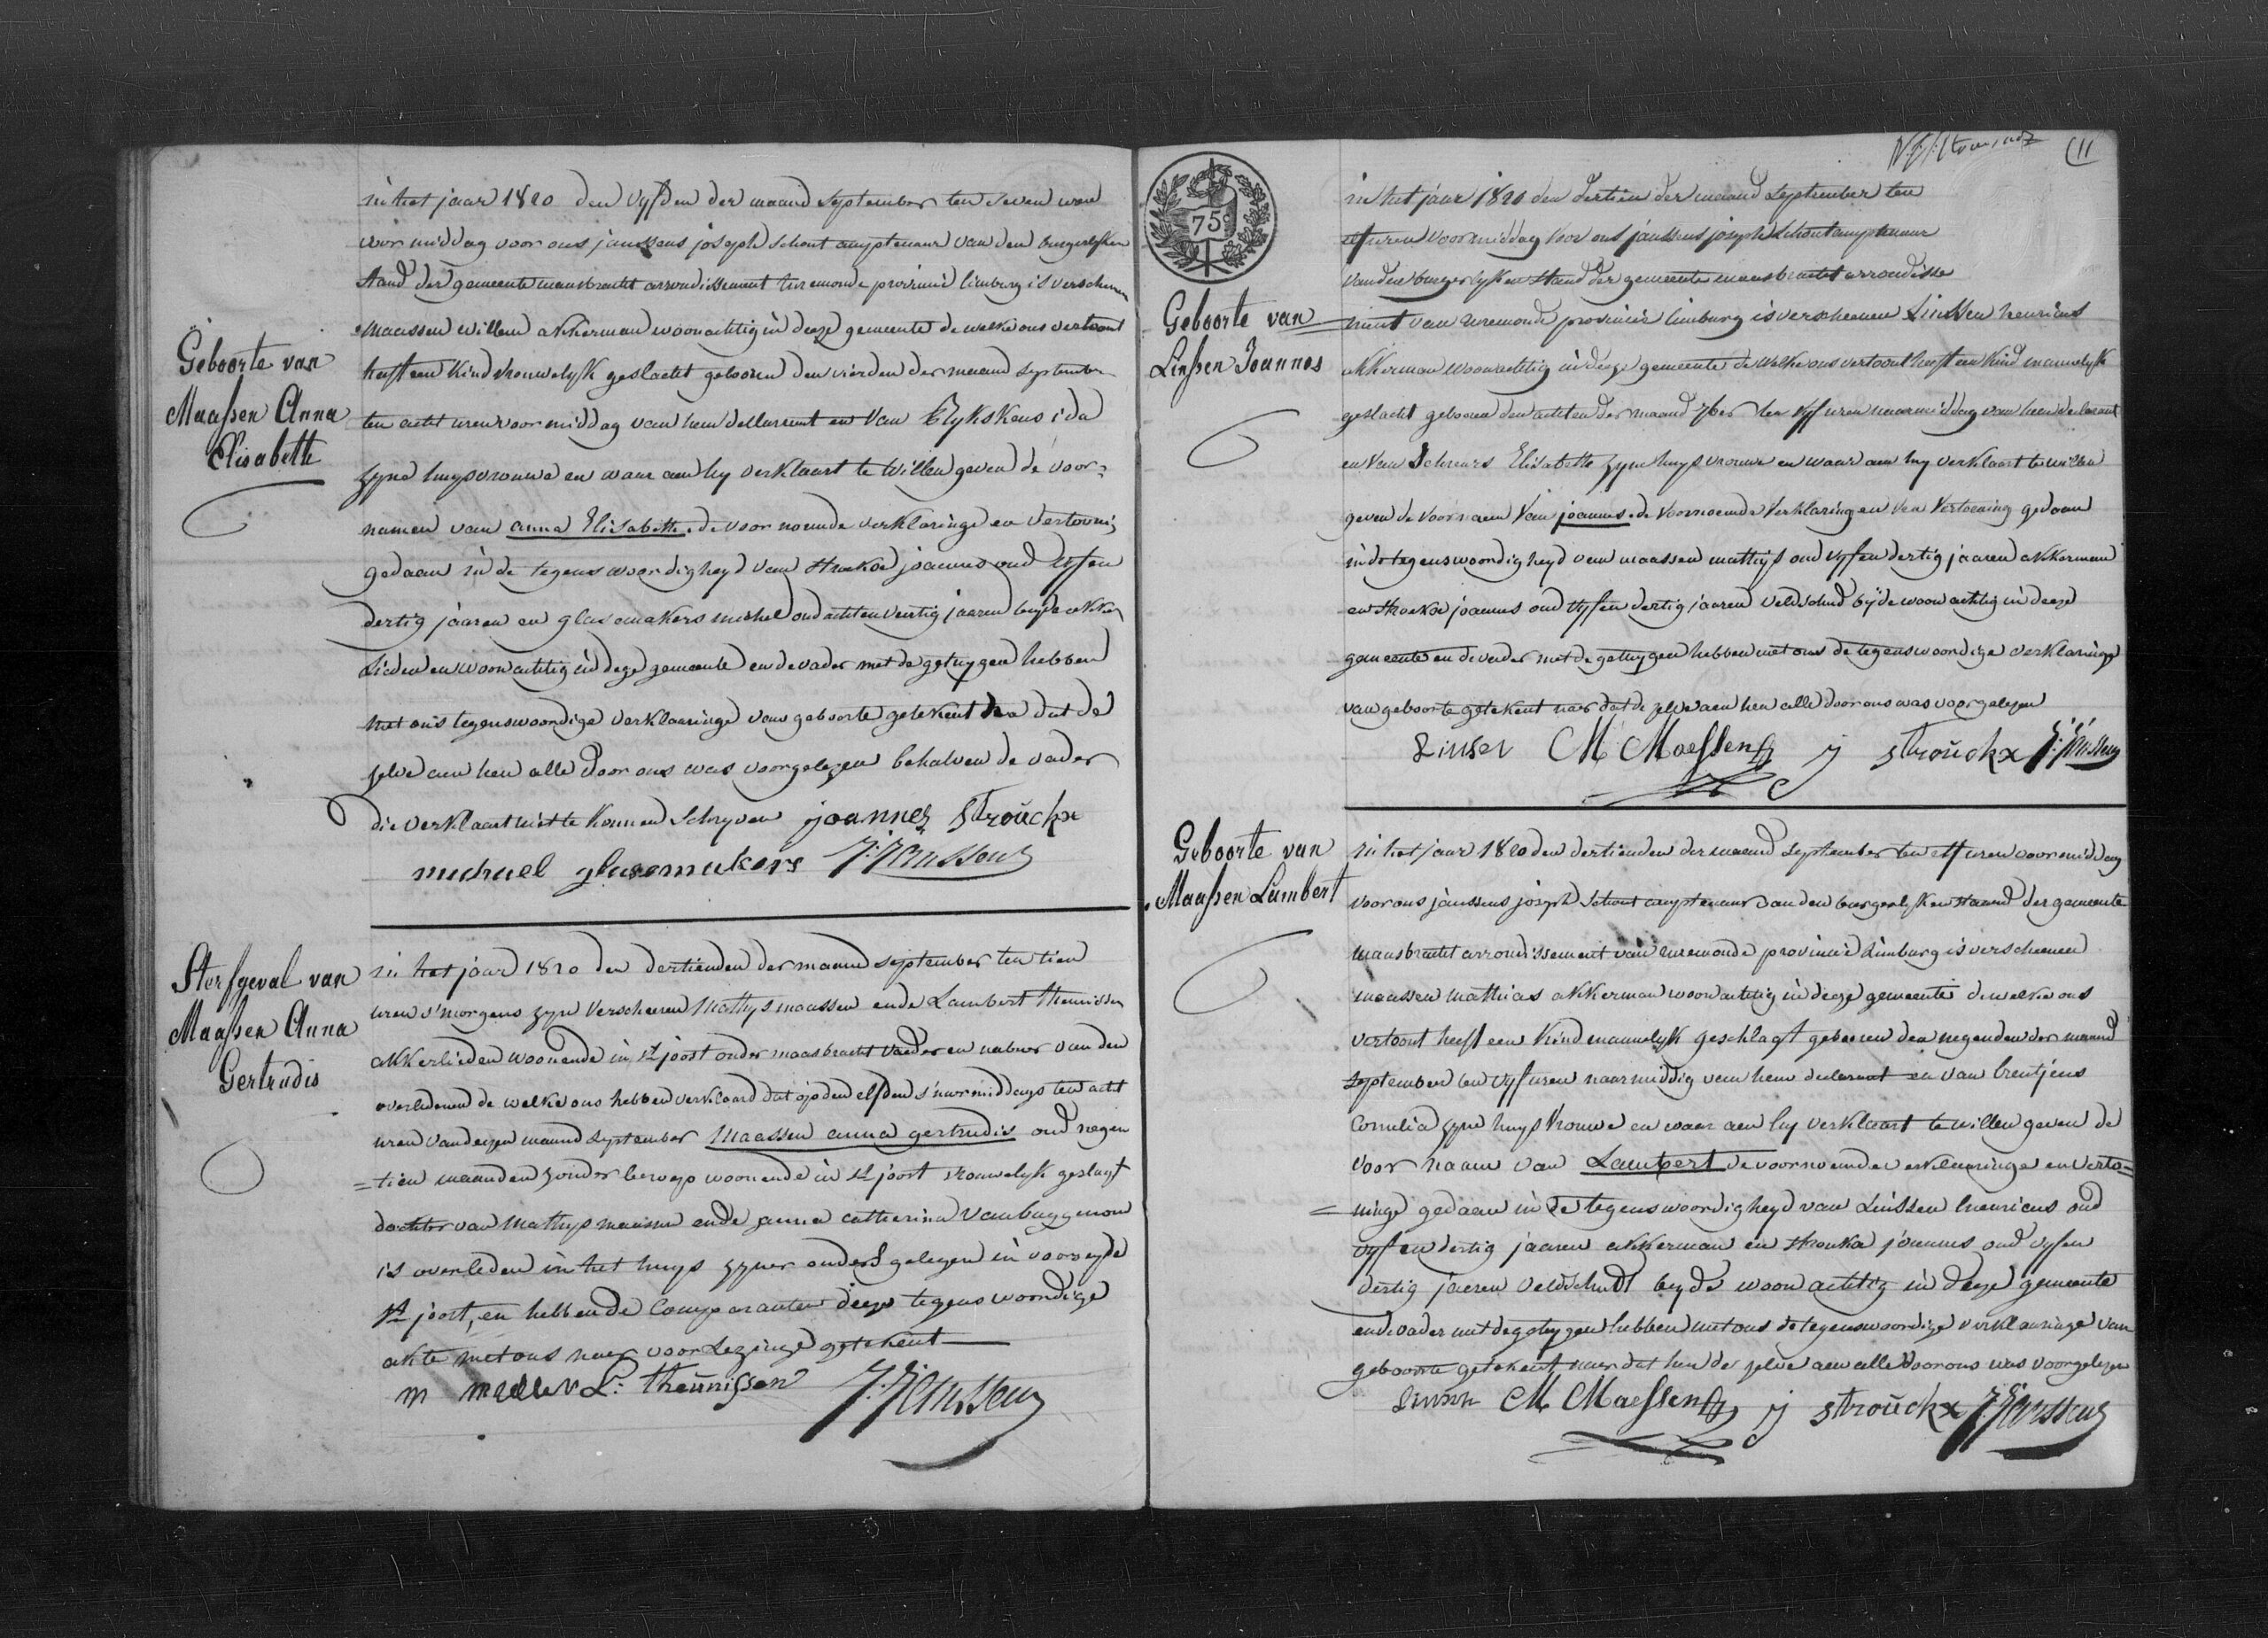 Geboorte van
Maassen Anna
Elisabeth
in het jaar 1820 den vyfden der maand september ten seven uren
voormiddag voor ons janssens joseph schout amptenaar van den burgerlyken
stand der gemeente maasbracht arrondissement ruremonde provincie limburg is verschenen
maassen willem akkerman woonachtig in deeze gemeente de welke ons vertoont
heeft een kind vrouwelyk geslacht gebooren den vierden der maand september
ten acht uren voormiddag van hem declarant en van Clykskens ida
zyne huysvrouwe en waar aen hy verklaart te willen geven de voor=
namen van anna Elisabeth de voornoemde verklaringe en vertooning
gedaan in de tegenswoordigheyd van stroekx joannes oud vyfen
dertig jaaren en glasemakers michel oud achtentwentig jaaren beyde akker
lieden en woonachtig in deze gemeente en de vader met de getuygen hebben
met ons tegenswoordige verklaaringe van geboorte getekent dat de
zelve aen hen alle door ons was voorgelezen behalven de vader
die verklaart niet te konnen schryven joannes stroückx
michael glasemakers J: Janssens
Sterfgeval van
Maassen Anna
Gertrudis
in het jaar 1820 den dertienden der maand september ten tien
uren s'morgens zyn verscheenen Mathys maassen ende Lambert theunissen
akkerlieden woonende in st joost onder maasbracht vaeder en nabuer van den
overledenen de welke ons hebben verklaard dat op den elfden s'namiddags ten acht
uren van dezen maand september Maassen anna gertrudis oud negen
=tien maanden zonder beroep woonende in st joost vrouwelyk geslagt
dochter van Mathys maassen ende anna catherina van buggenom
is overleden in het huys zyner ouders gelegen in voorzeyde
st joost, en hebben de Comparanten deeze tegenswoordige
akte met ons naer voorlezinge getekent
m L: theünissen J: Janssens
11
75c
Geboorte van
Linssen Joannes
in het jaar 1820 den dertien der maand september ten
elf uren voormiddag voor ons janssens joseph schout amptenaar
van den burgerlyken stand der gemeente maasbracht arrondisse
ment van ruremonde provincie limburg is verscheenen Linssen henricus
akkerman woonachtig in deeze gemeente de welke ons vertoont heeft een kind mannelyk
geslacht gebooren den achten der maand 7ber ten vyf uren naarmiddag van hem declarant
en van Schreurs Elisabetha zyne huysvrouwe en waar aen hy verklaart te willen
geven de voornaem van joannes de voornoemde verklaringe en vertooning gedaan
in de tegenswoordigheyd van maassen mathys oud vyfendertig jaaren akkerman
en stroekx joannes oud vyfendertig jaaren veldschud beyde woonachtig in deeze
gemeente en de vader met de getuygen hebben met ons de tegenswoordige verklaringe
van geboorte getekent naer dat de zelve aen hen alle door ons was voorgelezen
Linsen M Maessen j stroückx J: Janssens
Geboorte van
Maassen Lambert
in het jaar 1820 den dertienden der maand september ten elf uren voormiddag
voor ons janssens joseph schout amptenaar van den burgerlyken stand der gemeente
maasbracht arrondissement van ruremonde provincie Limburg is verscheenen
maassen mathias akkerman woonachtig in deeze gemeente dewelke ons
vertoont heeft een kind mannelyk geschlagt gebooren den negenden der maand
september ten vyf uren naarmiddag van hem declarant en van breutjens
Cornelia zyne huysvrouwe en waar aen hy verklaart te willen geven de
voor naam van Lambert de voornoemde verklaaringe en verto=
=ninge gedaan in de tegenswoordigheyd van Linssen henricus oud
vyfendertig jaaren akkerman en stroukx joannes oud vyfen
dertig jaeren veldschudt beyde woonachtig in deeze gemeente
ende vader met de getuygen hebben met ons de tegenswoordige verklaaringe van
geboorte getekent naer dat hen de zelve aen alle door ons was voorgelezen
Linsen M Maessen j stroückx J: Janssens